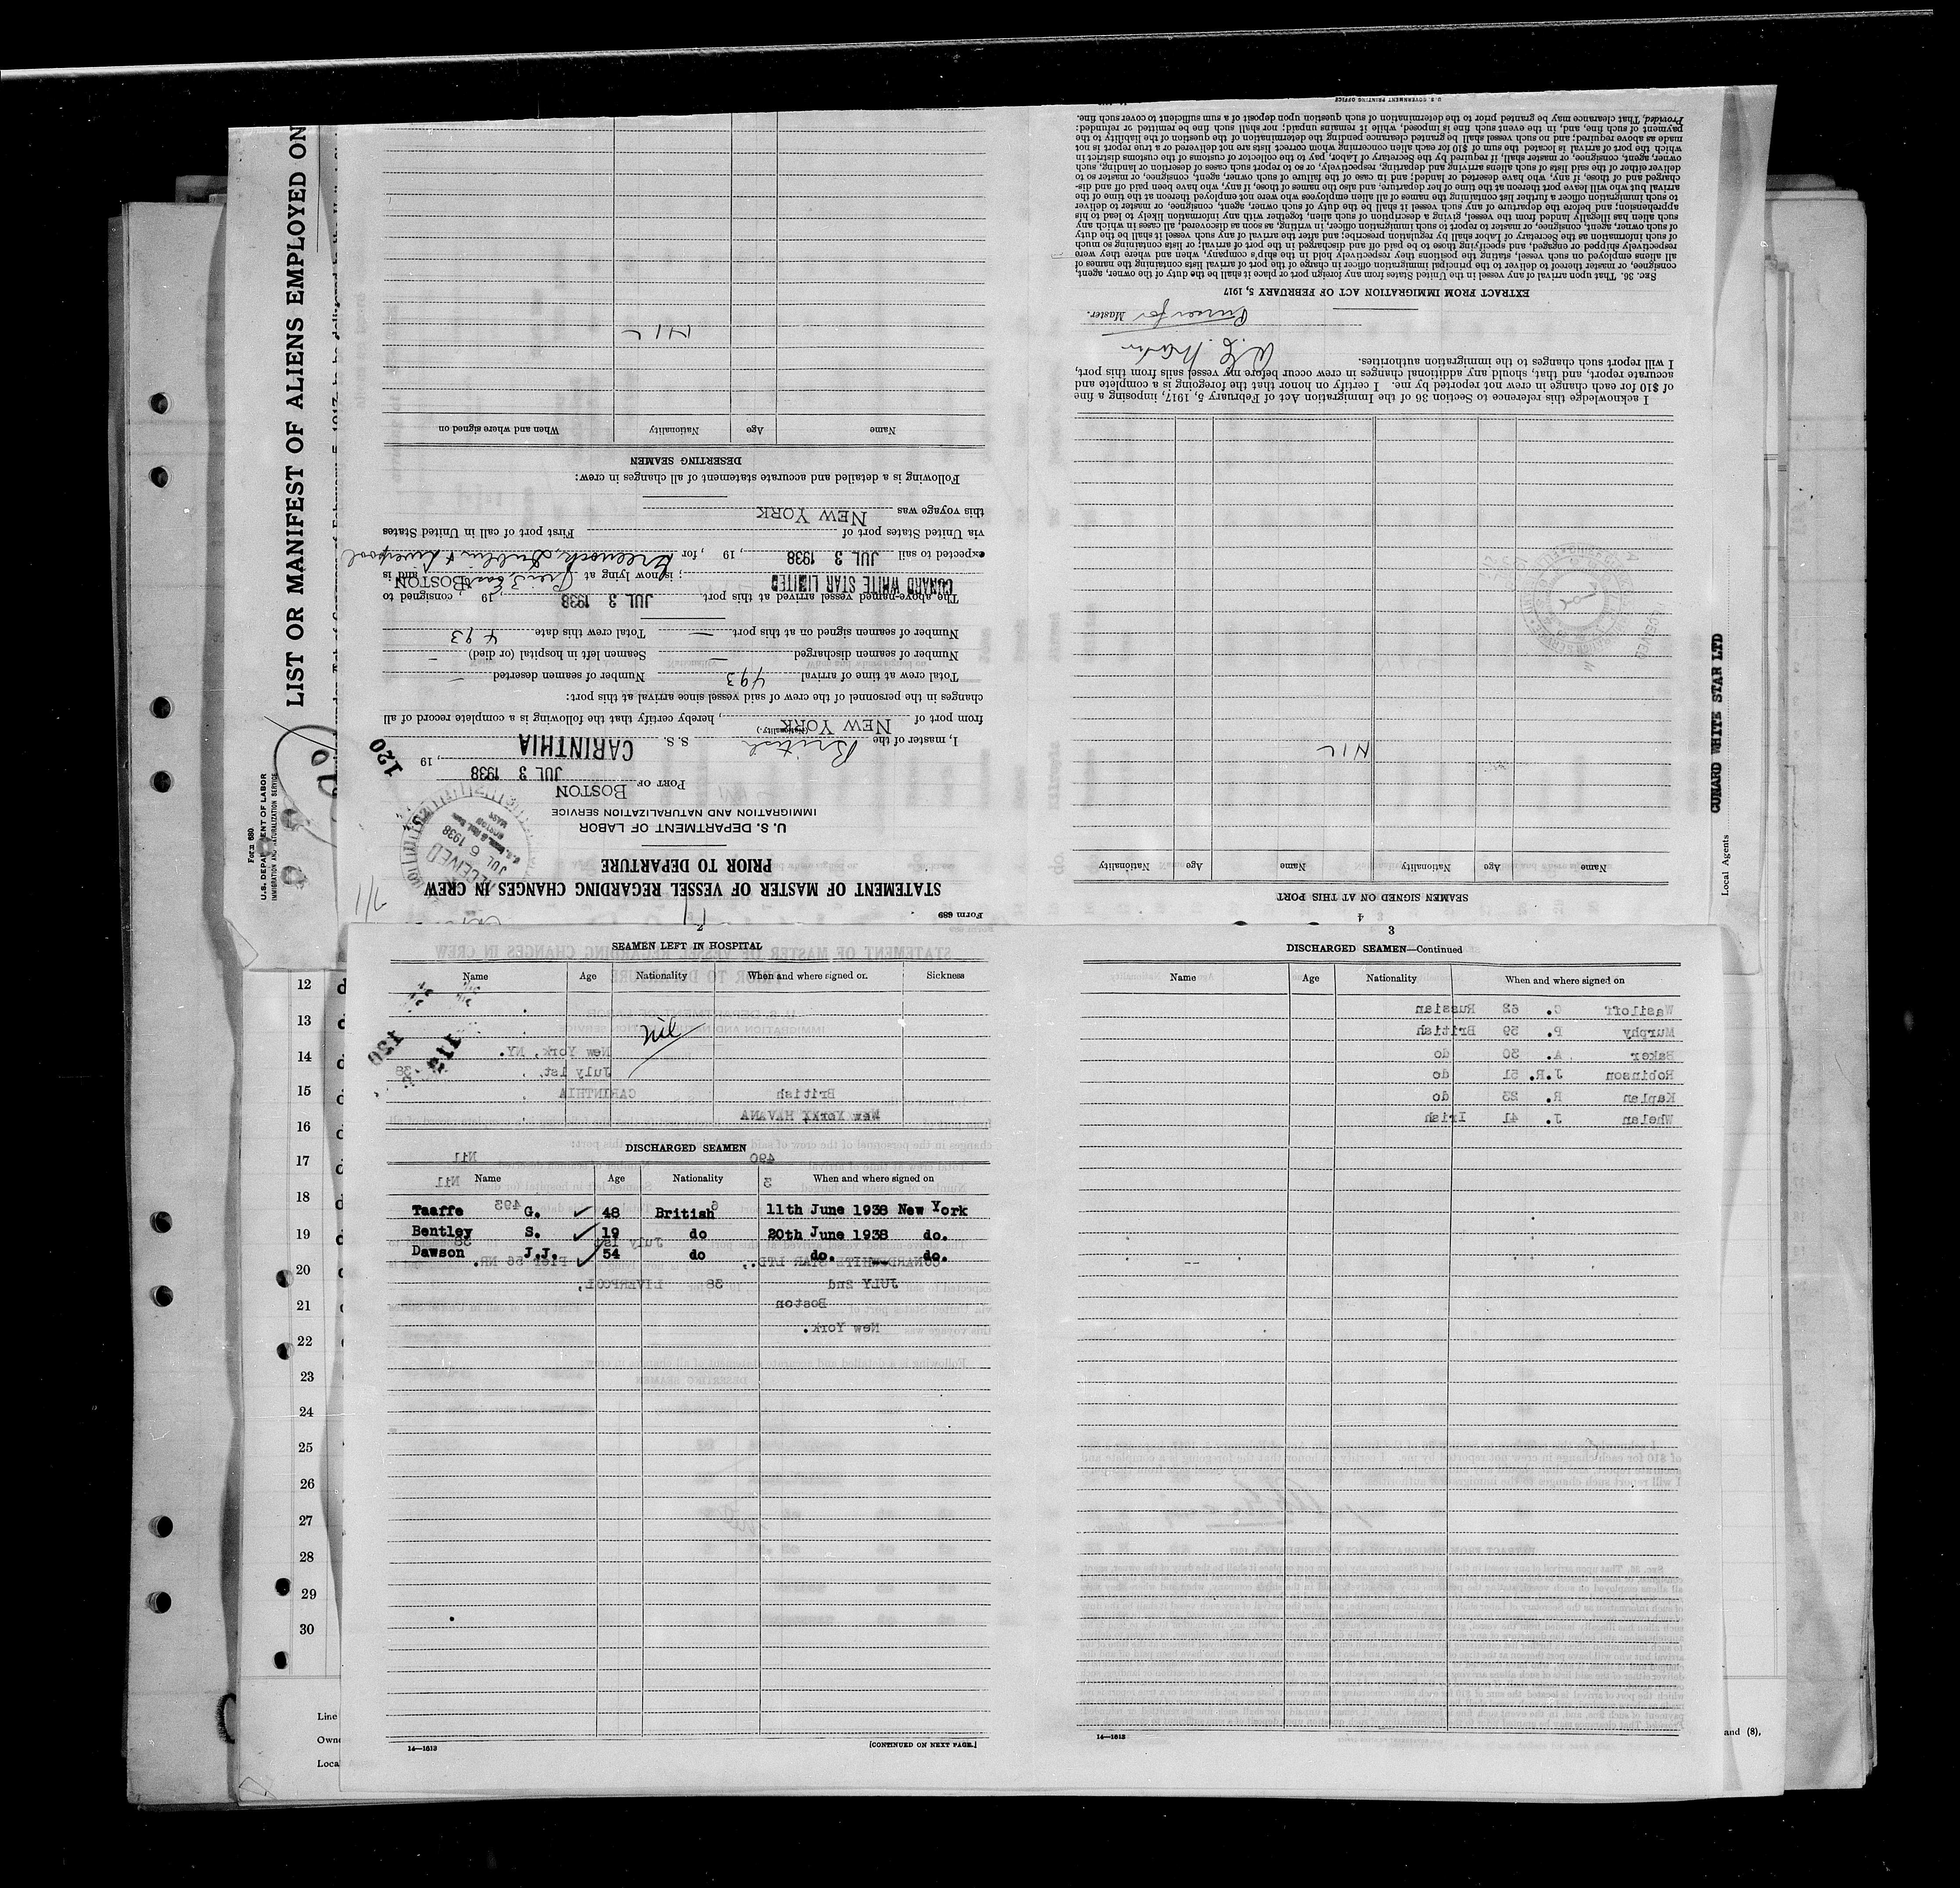 LIST OR MANIFEST OF ALIENS EMPLOYED ON
Form 680
U.S. DEPARTMENT OF LABOR
IMMIGRATION AND NATURALIZATION SERVICE
120
Form 689
STATEMENT OF MASTER OF VESSEL REGARDING CHANGES IN CREW
PRIOR TO DEPARTURE
U. S. DEPARTMENT OF LABOR
IMMIGRATION AND NATURALIZATION SERVICE
RECEIVED
JUL 6 1938
PORT OF BOSTON
JUL 3 1938, 19
I, master of the British S. S. CARINTHIA
(Nationality.)
from port of NEW YORK, hereby certify that the following is a complete record of all
changes in the personnel of the crew of said vessel since arrival at this port:
Total crew at time of arrival 493 Number of seamen deserted –
Number of seamen discharged — Seamen left in hospital (or died) –
Number of seamen signed on at this port — Total crew this date 493
The above-named vessel arrived at this port JUL 3 1938 19, consigned to
CUNARD WHITE STAR LIMITED; is now lying at Pier 3 East BOSTON and is
expected to sail JUL 3 1938, 19, for Greenock, Dublin & Liverpool
via United States port of First port of call in United States
this voyage was NEW YORK
Following is a detailed and accurate statement of all changes in crew:
DESERTING SEAMEN
Name Age Nationality When and where signed on
NIL
4
SEAMEN SIGNED ON AT THIS PORT
Name Age Nationality Name Age Nationality
NIL
I acknowledge this reference to Section 36 of the Immigration Act of February 5, 1917, imposing a fine
of $10 for each change in crew not reported by me. I certify on honor that the foregoing is a complete and
accurate report, and that, should any additional changes in crew occur before my vessel sails from this port,
I will report such changes to the immigration authorities.
Purser for Master.
EXTRACT FROM IMMIGRATION ACT OF FEBRUARY 5, 1917
SEC. 36. That upon arrival of any vessel in the United States from any foreign port or place it shall be the duty of the owner, agent,
consignee, or master thereof to deliver to the principal immigration officer in charge of the port of arrival lists containing the names of
all aliens employed on such vessel, stating the positions they respectively hold in the ship's company, when and where they were
respectively shipped or engaged, and specifying those to be paid off and discharged in the port of arrival; or lists containing so much
of such information as the Secretary of Labor shall by regulation prescribe; and after the arrival of any such vessel it shall be the duty
of such owner, agent, consignee, or master to report to such immigration officer, in writing, as soon as discovered, all cases in which any
such alien has illegally landed from the vessel, giving a description of such alien, together with any information likely to lead to his
apprehension; and before the departure of any such vessel it shall be the duty of such owner, agent, consignee, or master to deliver
to such immigration officer a further list containing the names of all alien employees who were not employed thereon at the time of the
arrival but who will leave port thereon at the time of her departure, and also the names of those, if any, who have been paid off and dis-
charged and of those, if any, who have deserted or landed; and in case of the failure of such owner, agent, consignee, or master to
deliver either of the said lists of such aliens arriving and departing, respectively, or so to report such cases of desertion or landing, such
owner, agent, consignee, or master shall, if required by the Secretary of Labor, pay to the collector of customs of the customs district in
which the port of arrival is located the sum of $10 for each alien concerning whom correct lists are not delivered or a true report is not
made as above required; and no such vessel shall be granted clearance pending the determination of the question of the liability to the
payment of such fine, and, in the event such fine is imposed, while it remains unpaid; nor shall such fine be remitted or refunded:
Provided, That clearance may be granted prior to the determination of such question upon deposit of a sum sufficient to cover such fine.
U. S. GOVERNMENT PRINTING OFFICE
CUNARD WHITE STAR LTD
Local Agents
2
SEAMEN LEFT IN HOSPITAL
Name Age Nationality When and where signed on Sickness
Nil
DISCHARGED SEAMEN
Name Age Nationality When and where signed on
Taaffe G. ✓ 48 British 11th June 1938 New York
Bentley S. ✓ 19 do 20th June 1938 do.
Dawson J.J. ✓ 54 do do. do.
14—1613
[CONTINUED ON NEXT PAGE.]
3
DISCHARGED SEAMEN—Continued
Name Age Nationality When and where signed on
Wasiloff C. 62 Russian
Murphy P. 59 British
Baker A. 30 do
Robinson J.R. 51 do
Kaplan R. 23 do
Whelan J. 41 Irish
14—1613
New York, NY.
July 1st, 38
British CARINTHIA
HAVANA
490 Nil
3 Nil
6 493
July 1st 38
CUNARD WHITE STAR LTD., Pier 56 NR.
JULY 2nd 38 LIVERPOOL,
Boston
New York.
12
13
14
15
16
17
18
19
20
21
22
23
24
25
26
27
28
29
30
Line
Local
and (8),